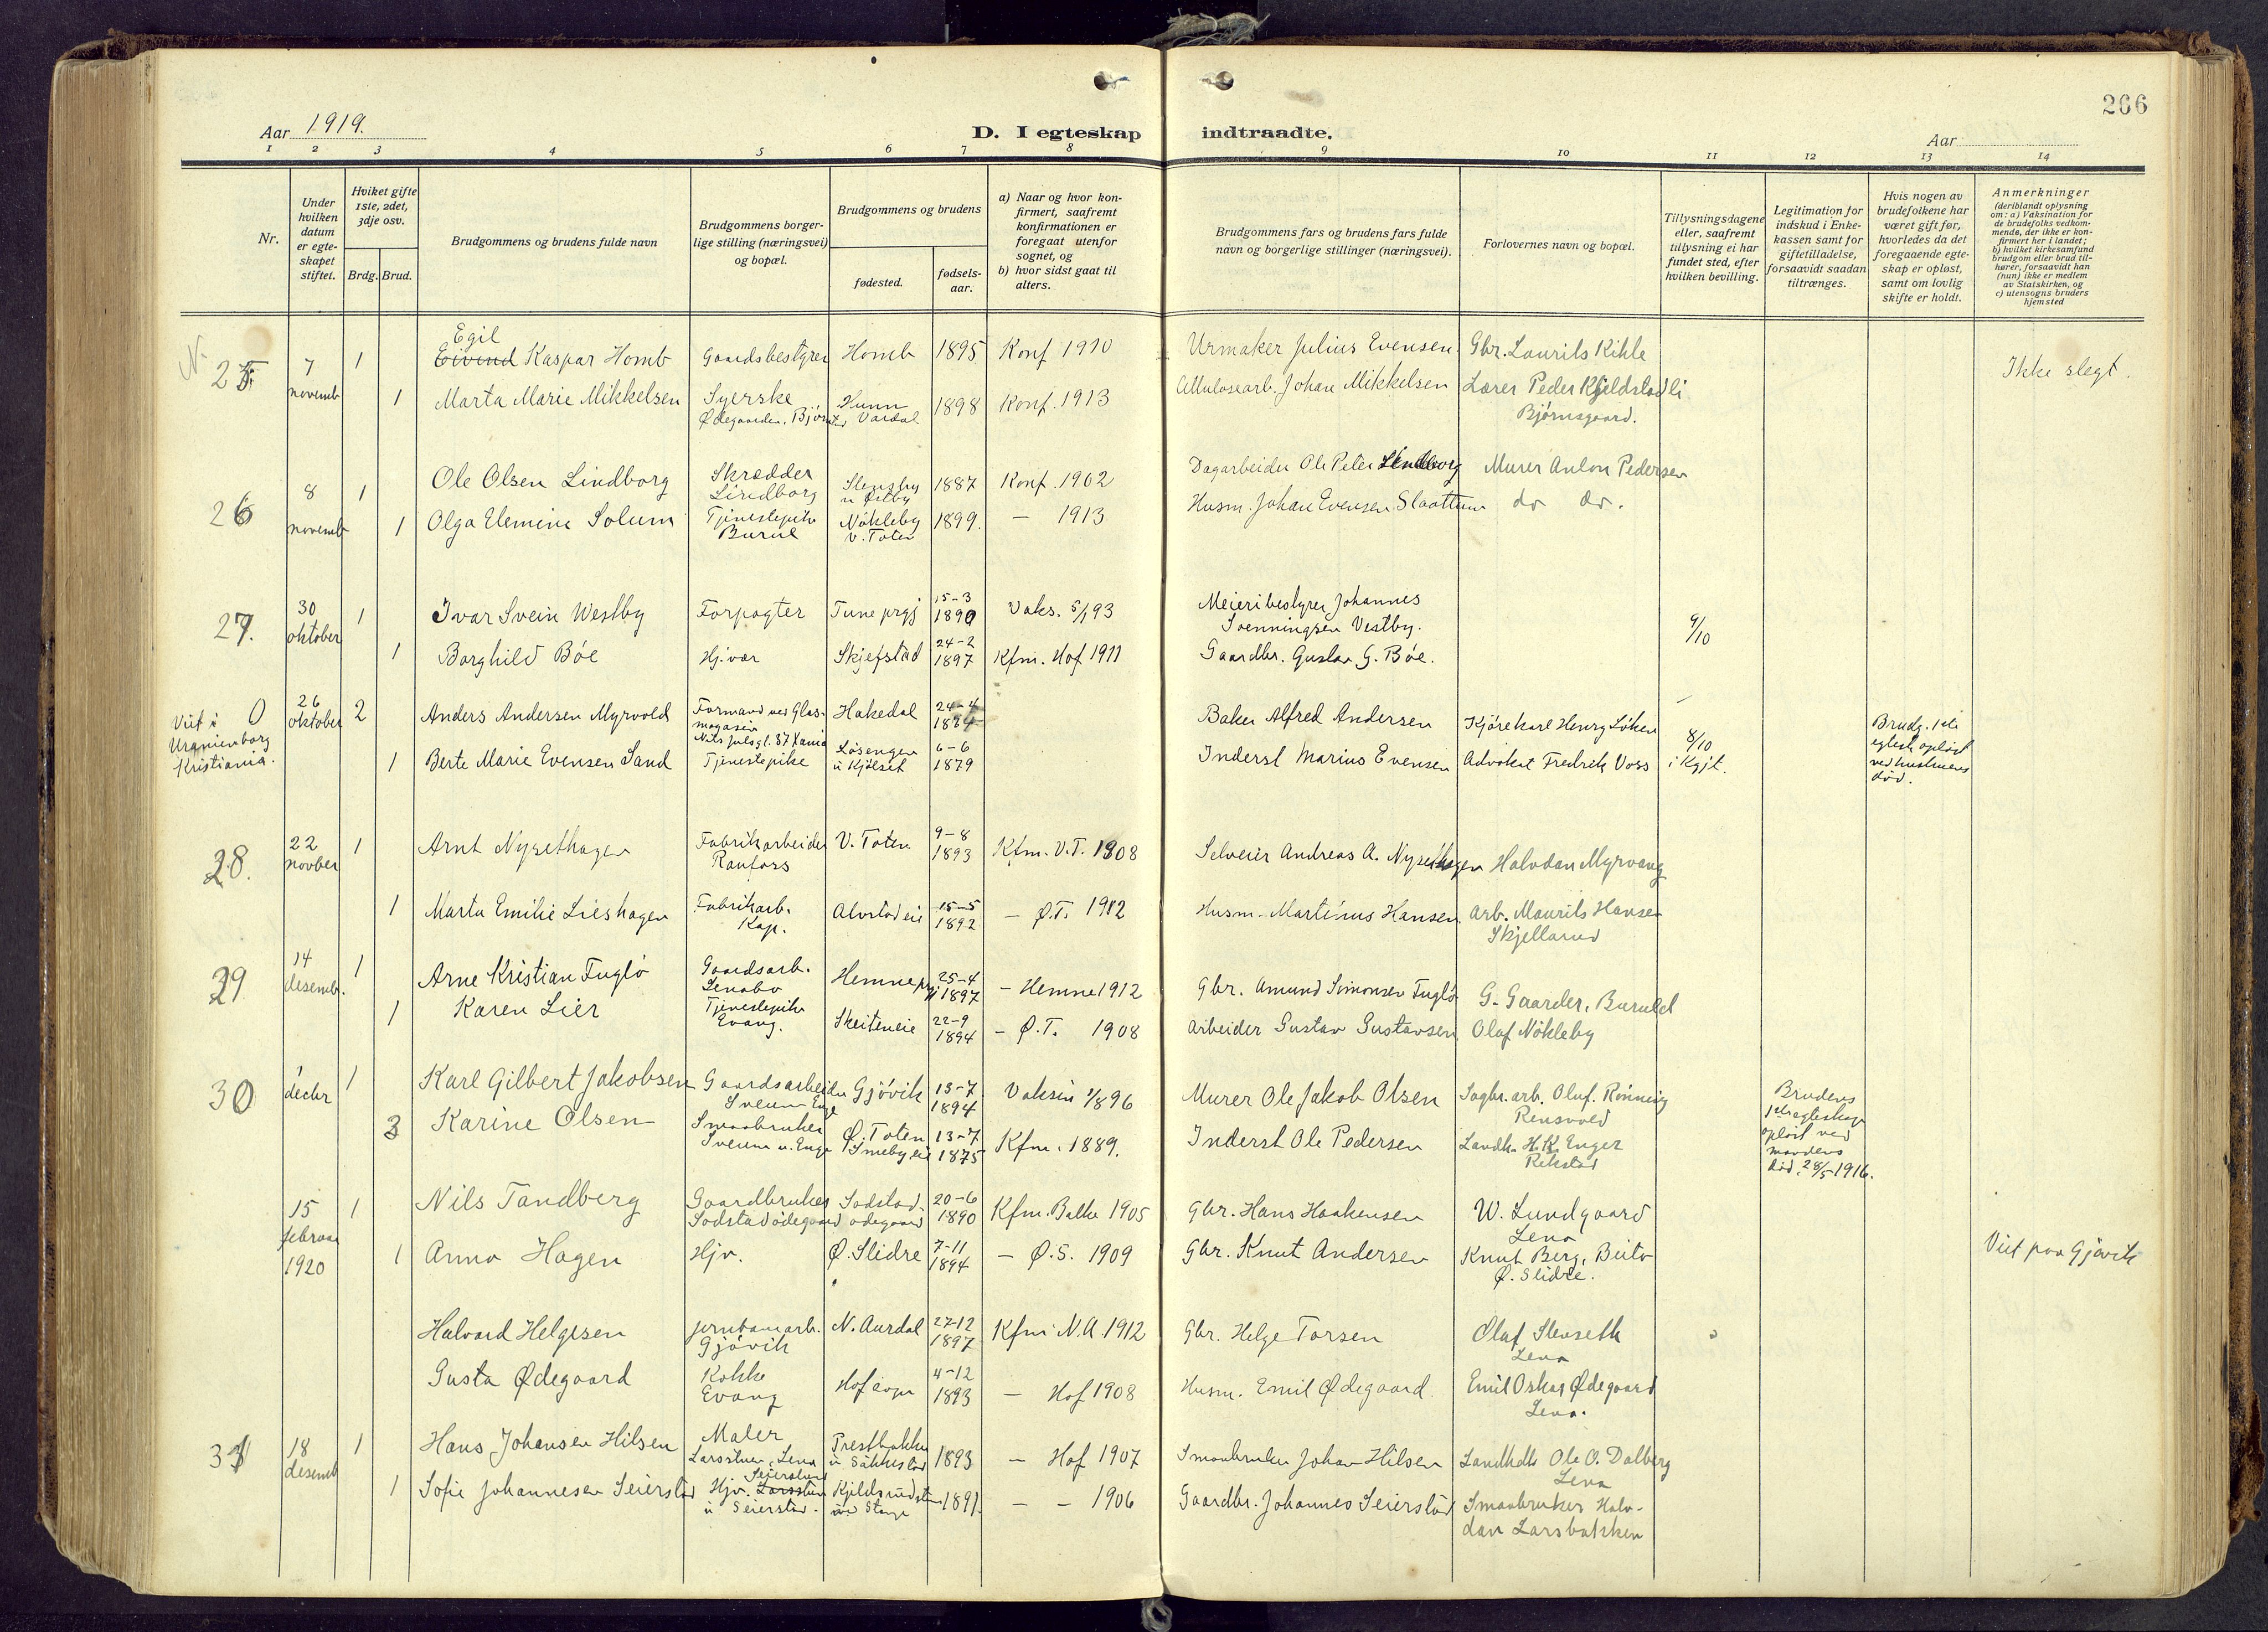 266
Aar 1919.
D. I egteskap indtraadte.
Aar
1 2 3 4 5 6 7 8 9 10 11 12 13 14
Nr.
Under hvilken datum er egteskapet stiftet.
Hvilket gifte 1ste, 2det, 3dje osv.
Brdg. Brud.
Brudgommens og brudens fulde navn
Brudgommens borgerlige stilling (næringsvei) og bopæl.
Brudgommens og brudens
fødested.
fødselsaar.
a) Naar og hvor konfirmert, saafremt konfirmationen er foregaat utenfor sognet, og
b) hvor sidst gaat til alters.
Brudgommens fars og brudens fars fulde navn og borgerlige stillinger (næringsvei).
Forlovernes navn og bopæl.
Tillysningsdagene eller, saafremt tillysning ei har fundet sted, efter hvilken bevilling.
Legitimation for indskud i Enkekassen samt for giftetilladelse, forsaavidt saadan tiltrænges.
Hvis nogen av brudefolkene har været gift før, hvorledes da det foregaaende egteskap er opløst, samt om lovlig skifte er holdt.
Anmerkninger (deriblandt oplysning om: a) Vaksination for de brudefolks vedkommende, der ikke er konfirmert her i landet; b) hvilket kirkesamfund brudgom eller brud tilhører, forsaavidt han (hun) ikke er medlem av Statskirken, og c) utensogns bruders hjemsted
25 7 novemb 1 Egil Eivind Kaspar Homb Gaardsbestyrer Homb 1895 Konf 1910 Urmaker Julius Evensen Gbr. Laurits Kihle Ikke slegt.
1 Marta Marie Mikkelsen Syerske Ødegaarden, Hunn Vardal 1898 Konf. 1913 Cellulosearb. Johan Mikkelsen Lærer Peder Kjeldstadli Bjørnsgaard.
26 8 novemb 1 Ole Olsen Lindborg Skrædder Lindborg Stensby 1887 Konf. 1902 Dagarbeider Ole Peter Lindborg Murer Anton Pedersen
1 Olga Elemine Solum Tjenestepike Burul Nökleby V. Toten 1899. — 1913 Husm. Johan Evensen Slaattum do do.
27. 30 oktober 1 Ivar Svein Westby Forpagter Tune prgj 15-3 1890 Vaks. 5/1 93 Meieribestyrer Johannes Svenningsen Vestby. 9/10
1 Borghild Böe Hj.vær Skjefstad 24-2 1897 Kfm. Hof 1911 Gaardbr. Gustav G. Böe.
Viet i Uranienborg Kristiania. 0 26 oktober 2 Anders Andersen Myrvold Formand ved Glasmagasin Nils Juls gt. 37 Kania Hakedal 24-4 Baker Alfred Andersen Kjørekarl Henry Löken 8/10 i Kgjt. Brudg. 1ste egtesk. opløst ved hustruens död.
1 Berte Marie Evensen Sand Tjenestepike Løsengen u Kjølset 6-6 1879 Inderst Marius Evensen Advokat Fredrik Voss
28. 22 novber 1 Arnt Nysethagen Fabrikarbeider Raufoss V. Toten 9-8 1893 Kfm. V.T. 1908 Selveier Andreas A. Nysethagen Halvdan Myrvang
1 Marta Emilie Lieshagen Fabrikarb. Kap. Alvstad eie 15-5 1892 — Ø.T. 1912 Husm. Martinus Hansen arb. Maurits Hansen Skjellarud
29 14 desemb. 1 Arne Kristian Fuglö Gaardsarb. Lenabo Hemne 25-4 1897 — Hemne 1912 Gbr. Amund Simonsen Fuglö G. Gaarder, Buruld
1 Karen Lier Tjenestepike Evang. Skeiteneie 22-9 1894 — Ø.T. 1908 Arbeider Gustav Gustavsen Olaf Nökleby
30 1 decbr 1 Karl Gilbert Jakobsen Gaardsarbeider Sveum Enge Gjövik 13-7 1894 Vaksin 1/8 96 Murer Ole Jakob Olsen Sagbr. arb. Oluf. Rønning Rensvold Brudens 1ste egteskap opløst ved mandens död. 28/5 1916.
Karine Olsen Smaabruker Sveum u. Enge Ø. Toten Smeby eie 13-7 1875 Kfm. 1889. Inderst Ole Pedersen Landh. H.K. Enger Rekstad
15 februar 1920 1 Nils Tandberg Gaardbruker Sodstad ødegaard Sodstad ødegaard 20-6 1890 Kfm. Balke 1905 Gbr. Hans Haakensen W. Lundgaard Lena
1 Anna Hagen Hjv. Ø. Slidre 7-11 1894 — Ø.S. 1909 Gbr. Knut Andersen Knut Berg, Beito Ø. Slidre. Viet paa Gjøvik
Halvard Helgesen Jernbanearb. Gjövik N. Aurdal 27-12 1897 Kfm N.A. 1912 Gbr. Helge Torsen Olaf Stenseth Lena
Gusta Ødegaard Kokke Evang Hof sogn 4-12 1893 — Hof 1908 Husm. Emil Ødegaard. Emil Oskar Ødegaard Lena.
31 18 desemb 1 Hans Johansen Hilsen Maler Larsstuen, Lena Prestbakken u Sukkestad 1893 — Hof 1907 Smaabruker Johan Hilsen Landhdl. Ole O. Dalberg Lena
1 Sofie Johannesen Seierstad Hjv. Larsstuen Seierstuen u Seierstad. 1891. — — 1906 Gaardbr. Johannes Seierstad Smaabruker Halvdan Larsbakken